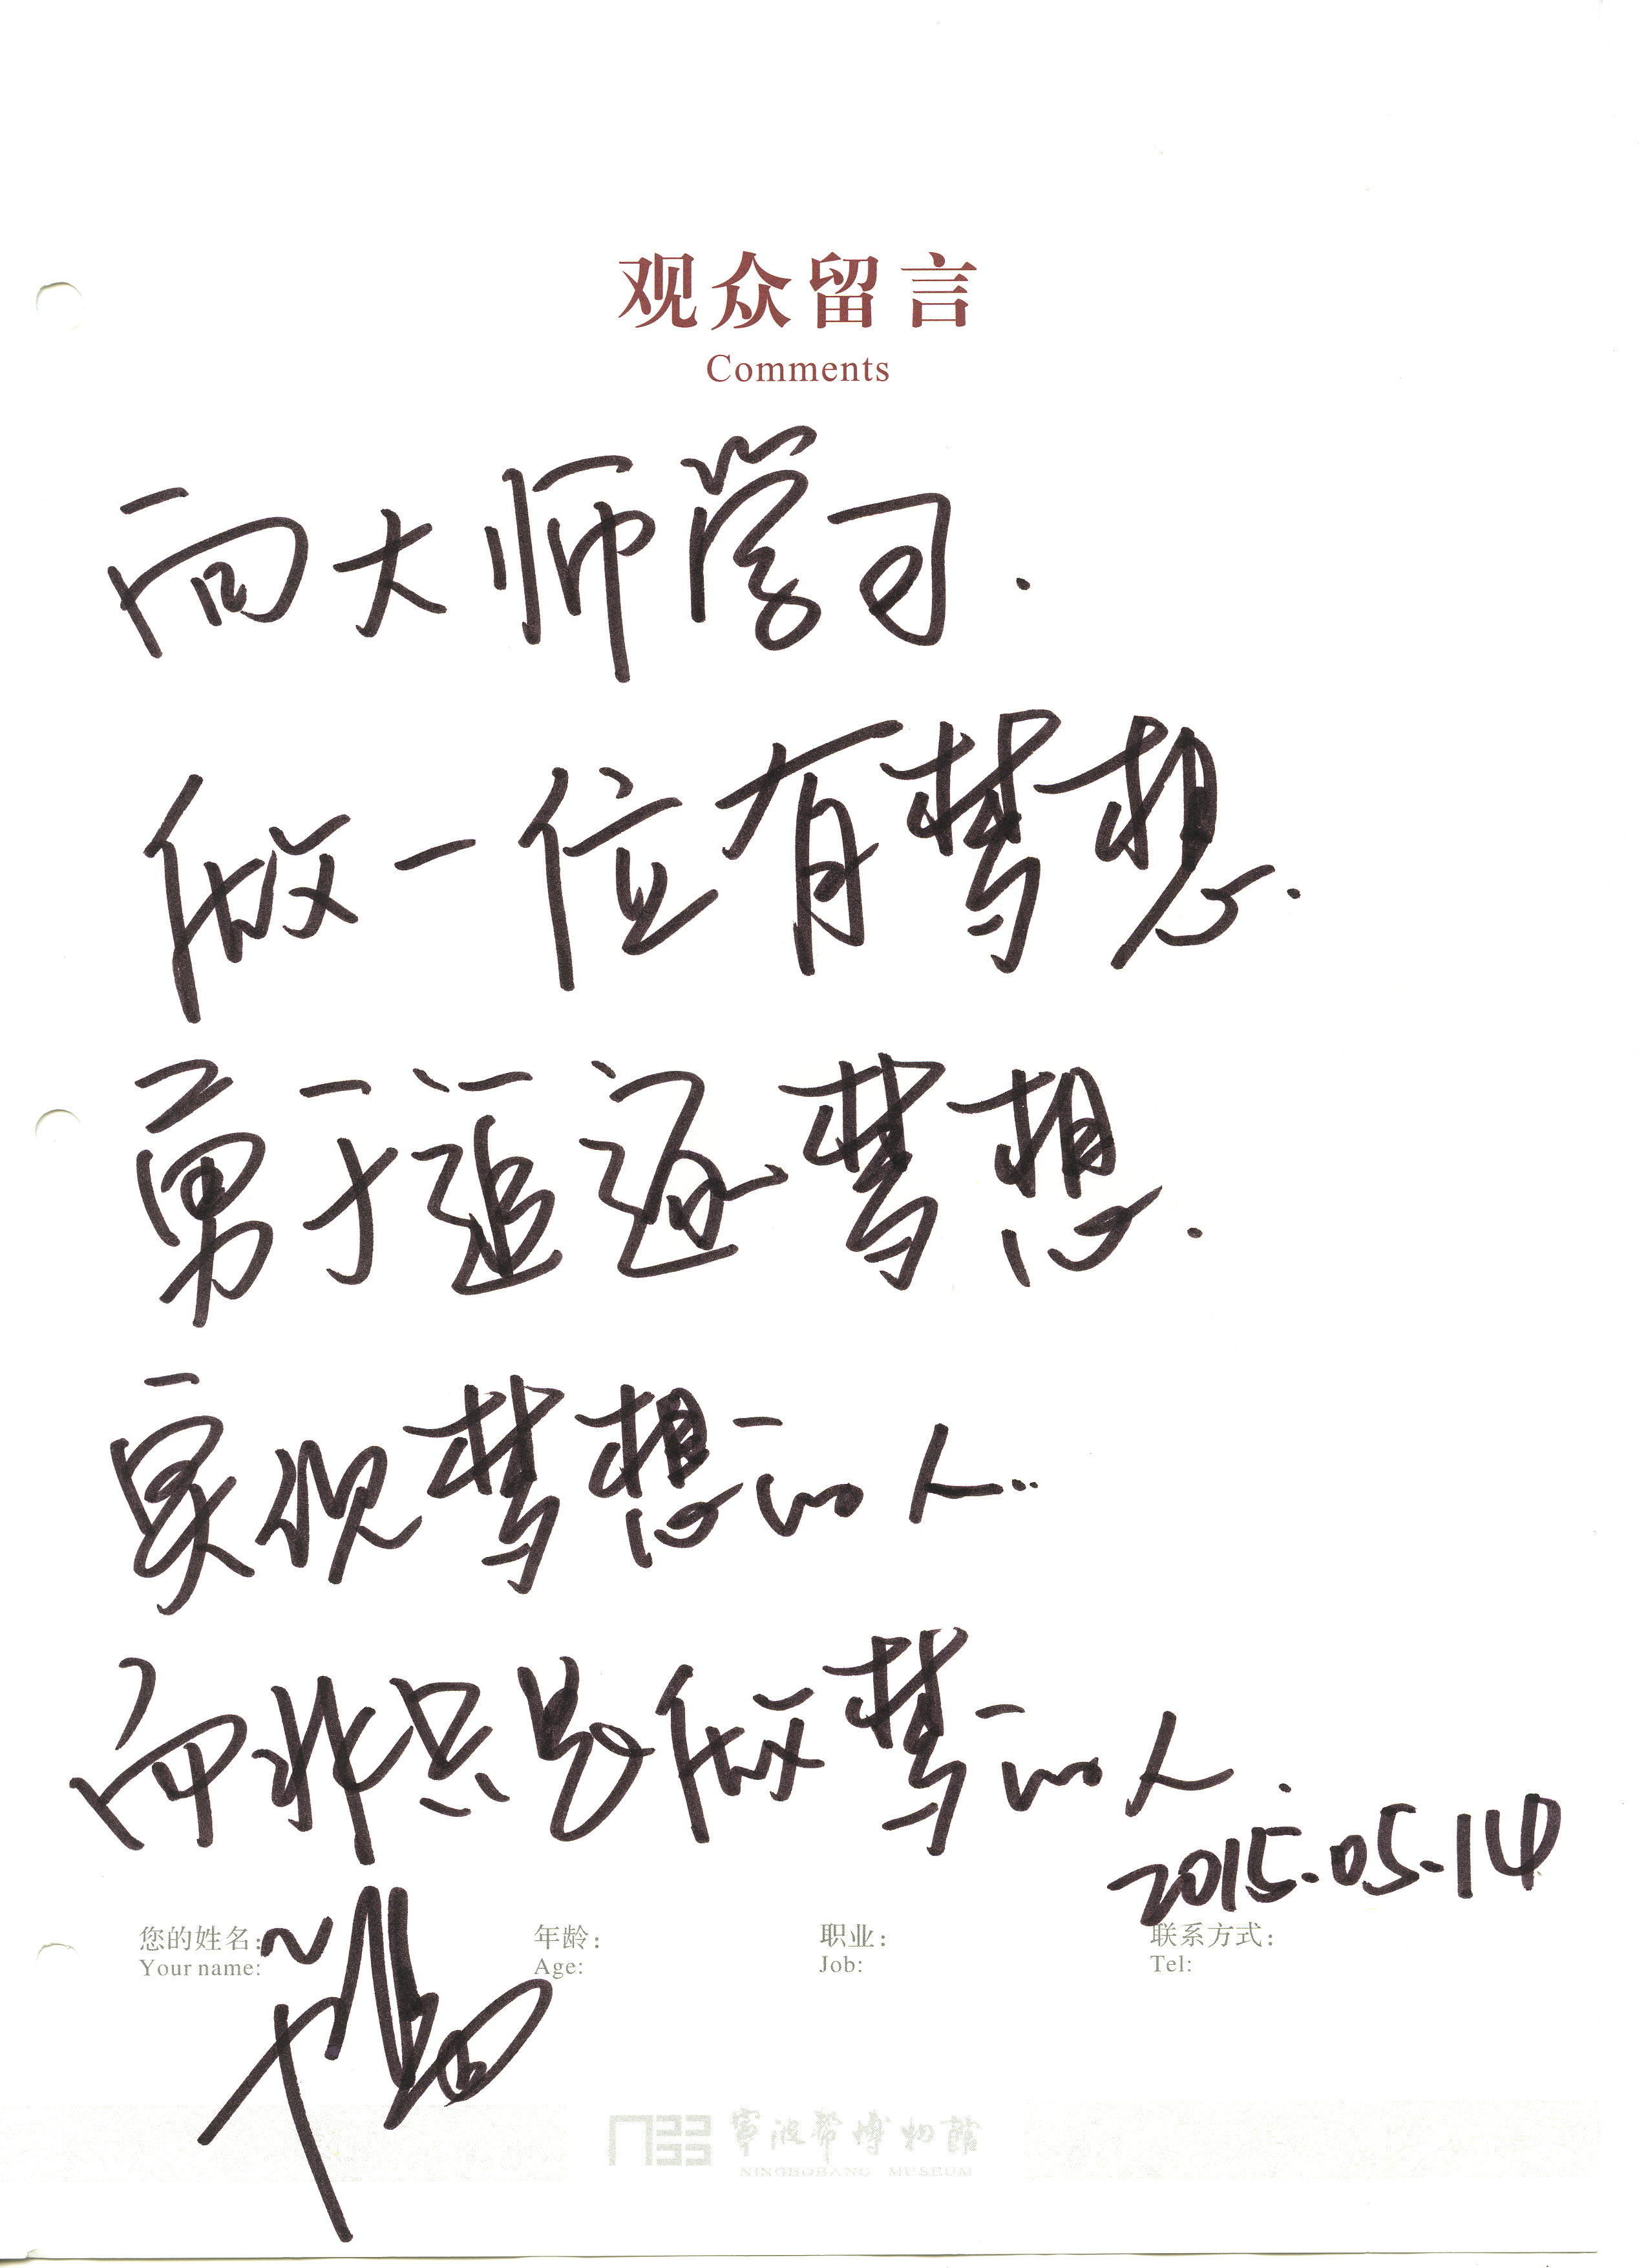 观众留言
Comments
向大师学习.
做一位有梦想.
勇于追逐梦想.
实现梦想的人..
而非只是做梦的人.
2015.05.14
您的姓名: 年龄: 职业: 联系方式:
Your name: Age: Job: Tel:
寧波幫博物館
NINGBOBANG MUSEUM